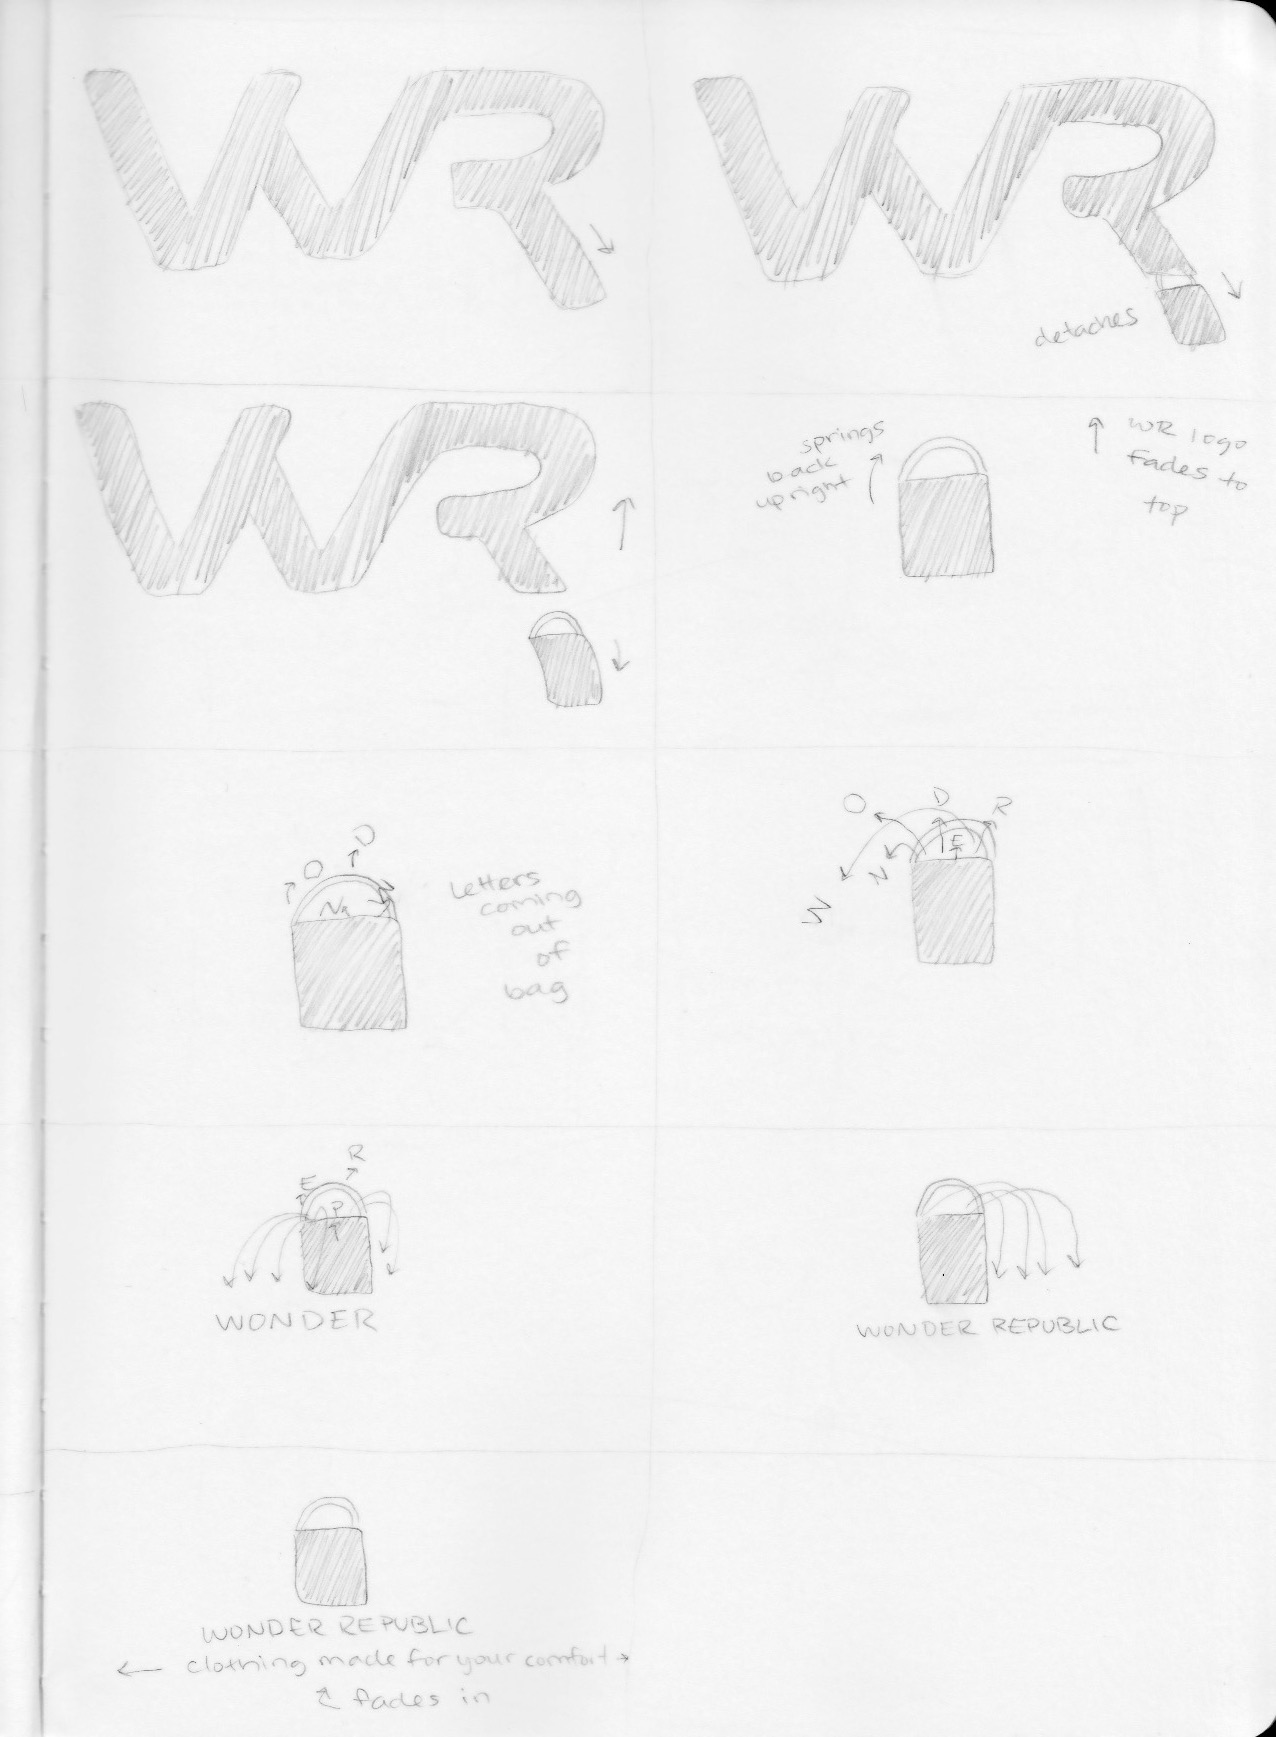 WR
WR
detaches
WR
springs
back
upright
WR logo
fades to
top
O
D
N
Letters
coming
out
of
bag
O
D
R
E
N
W
R
E
P
WONDER
WONDER REPUBLIC
WONDER REPUBLIC
clothing made for your comfort
fades in